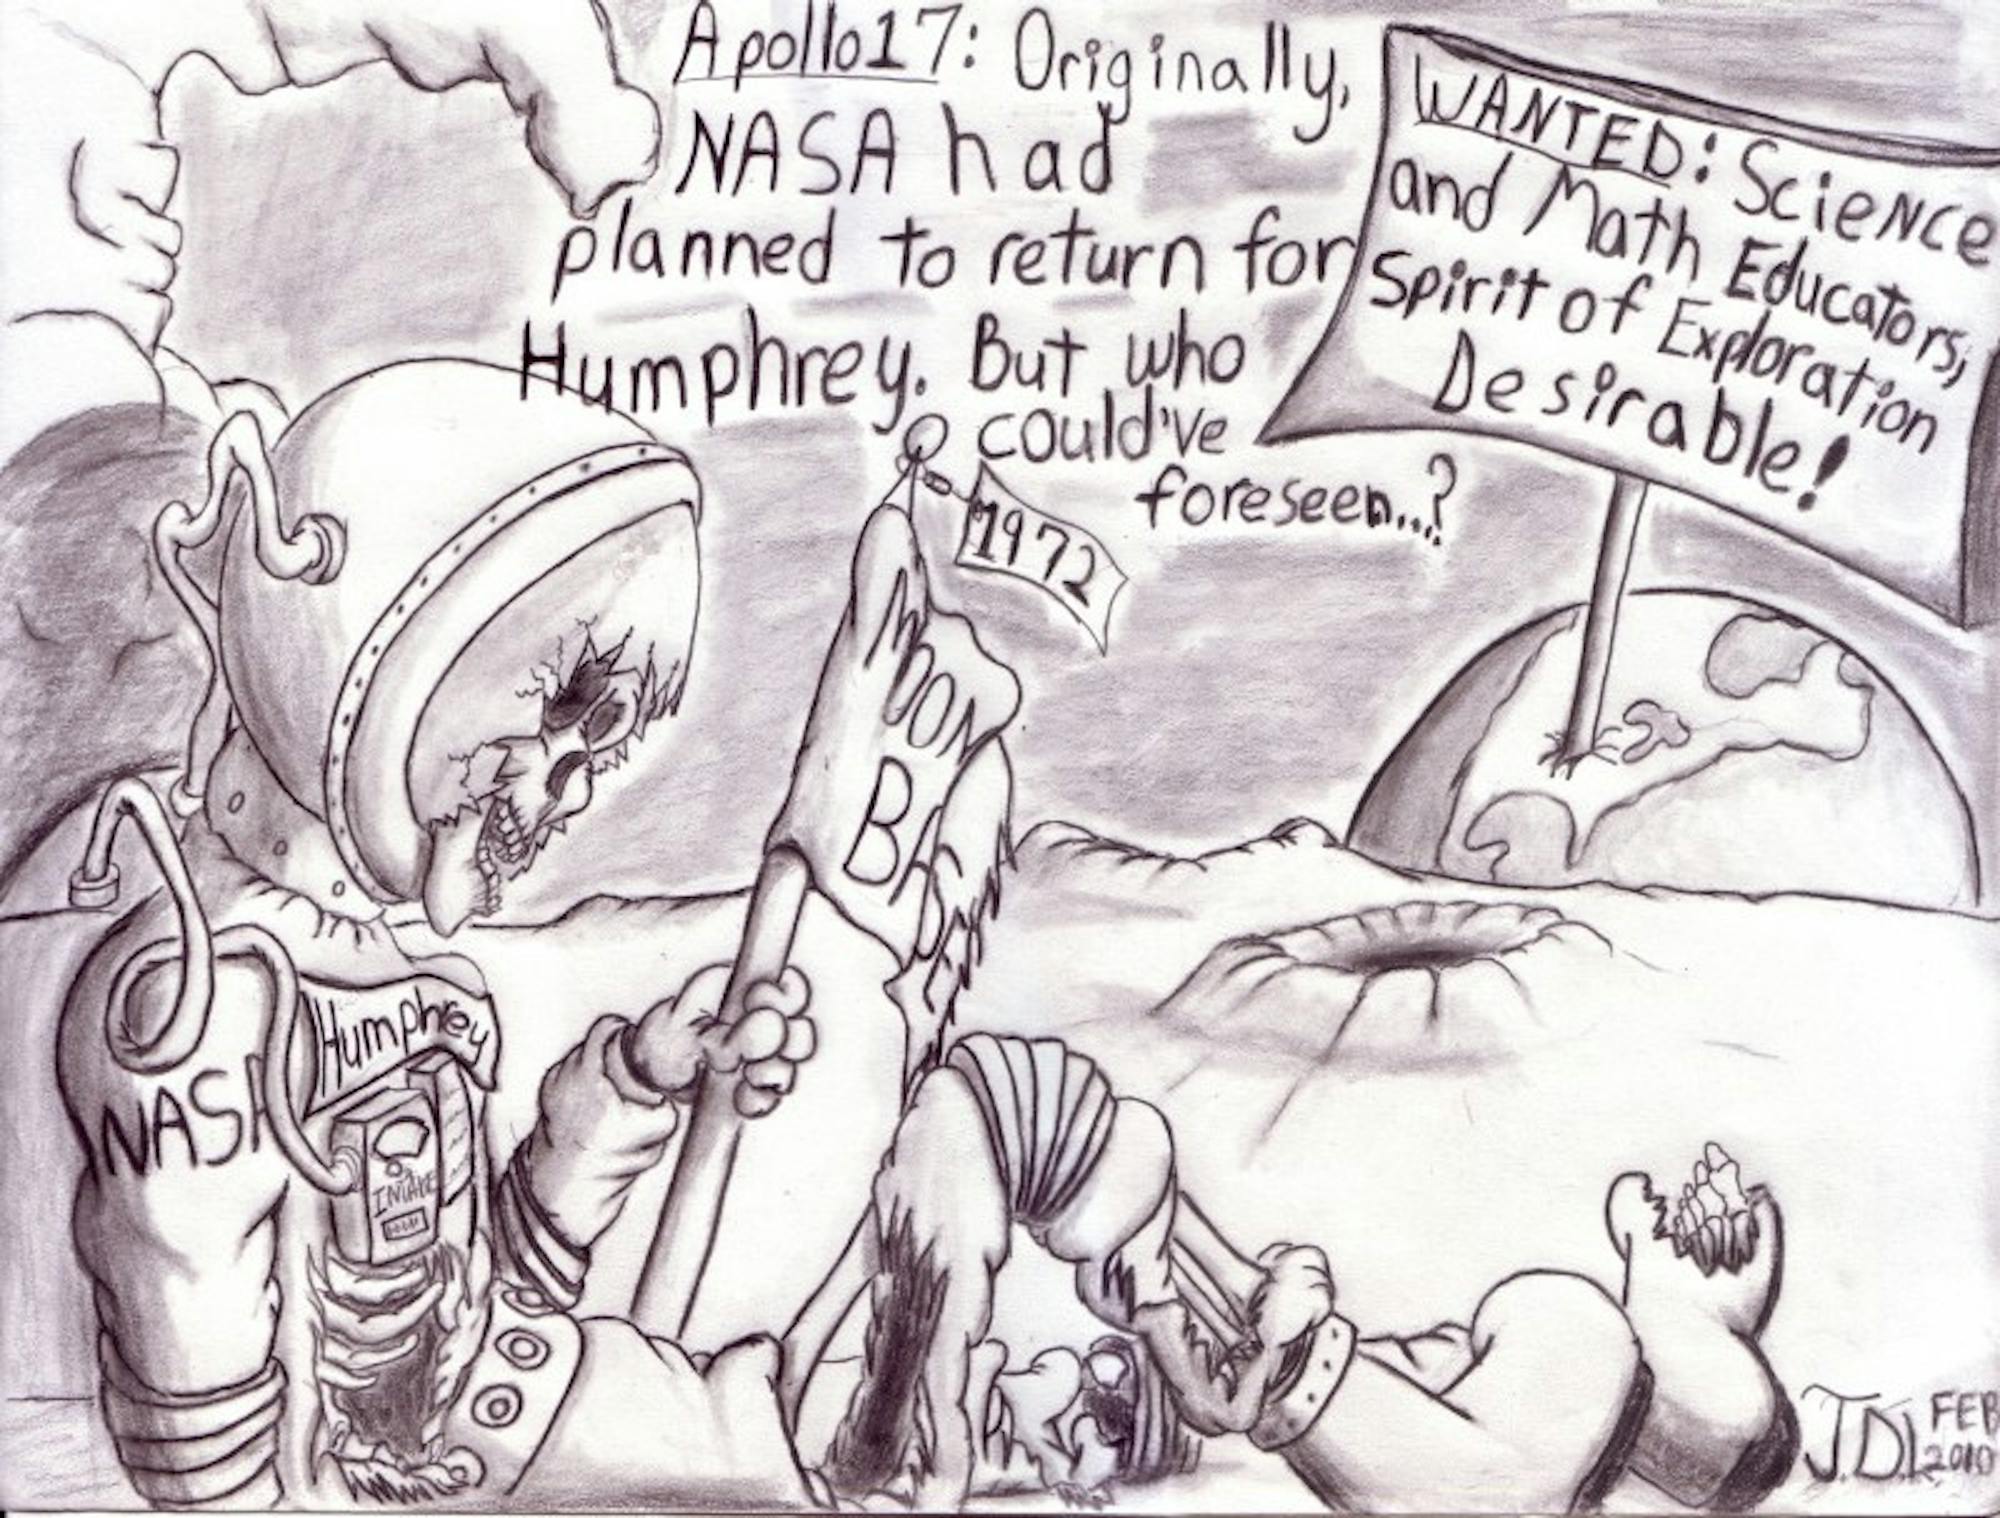 Apollo17: Originally,
NASA had
planned to return for
Humphrey. But who
could've
foreseen...?
WANTED: Science
and Math Educators,
Spirit of Exploration
Desirable!
1972
MOON
BA
Humphrey
NASA
INTAKE
J.D.I. FEB
2010